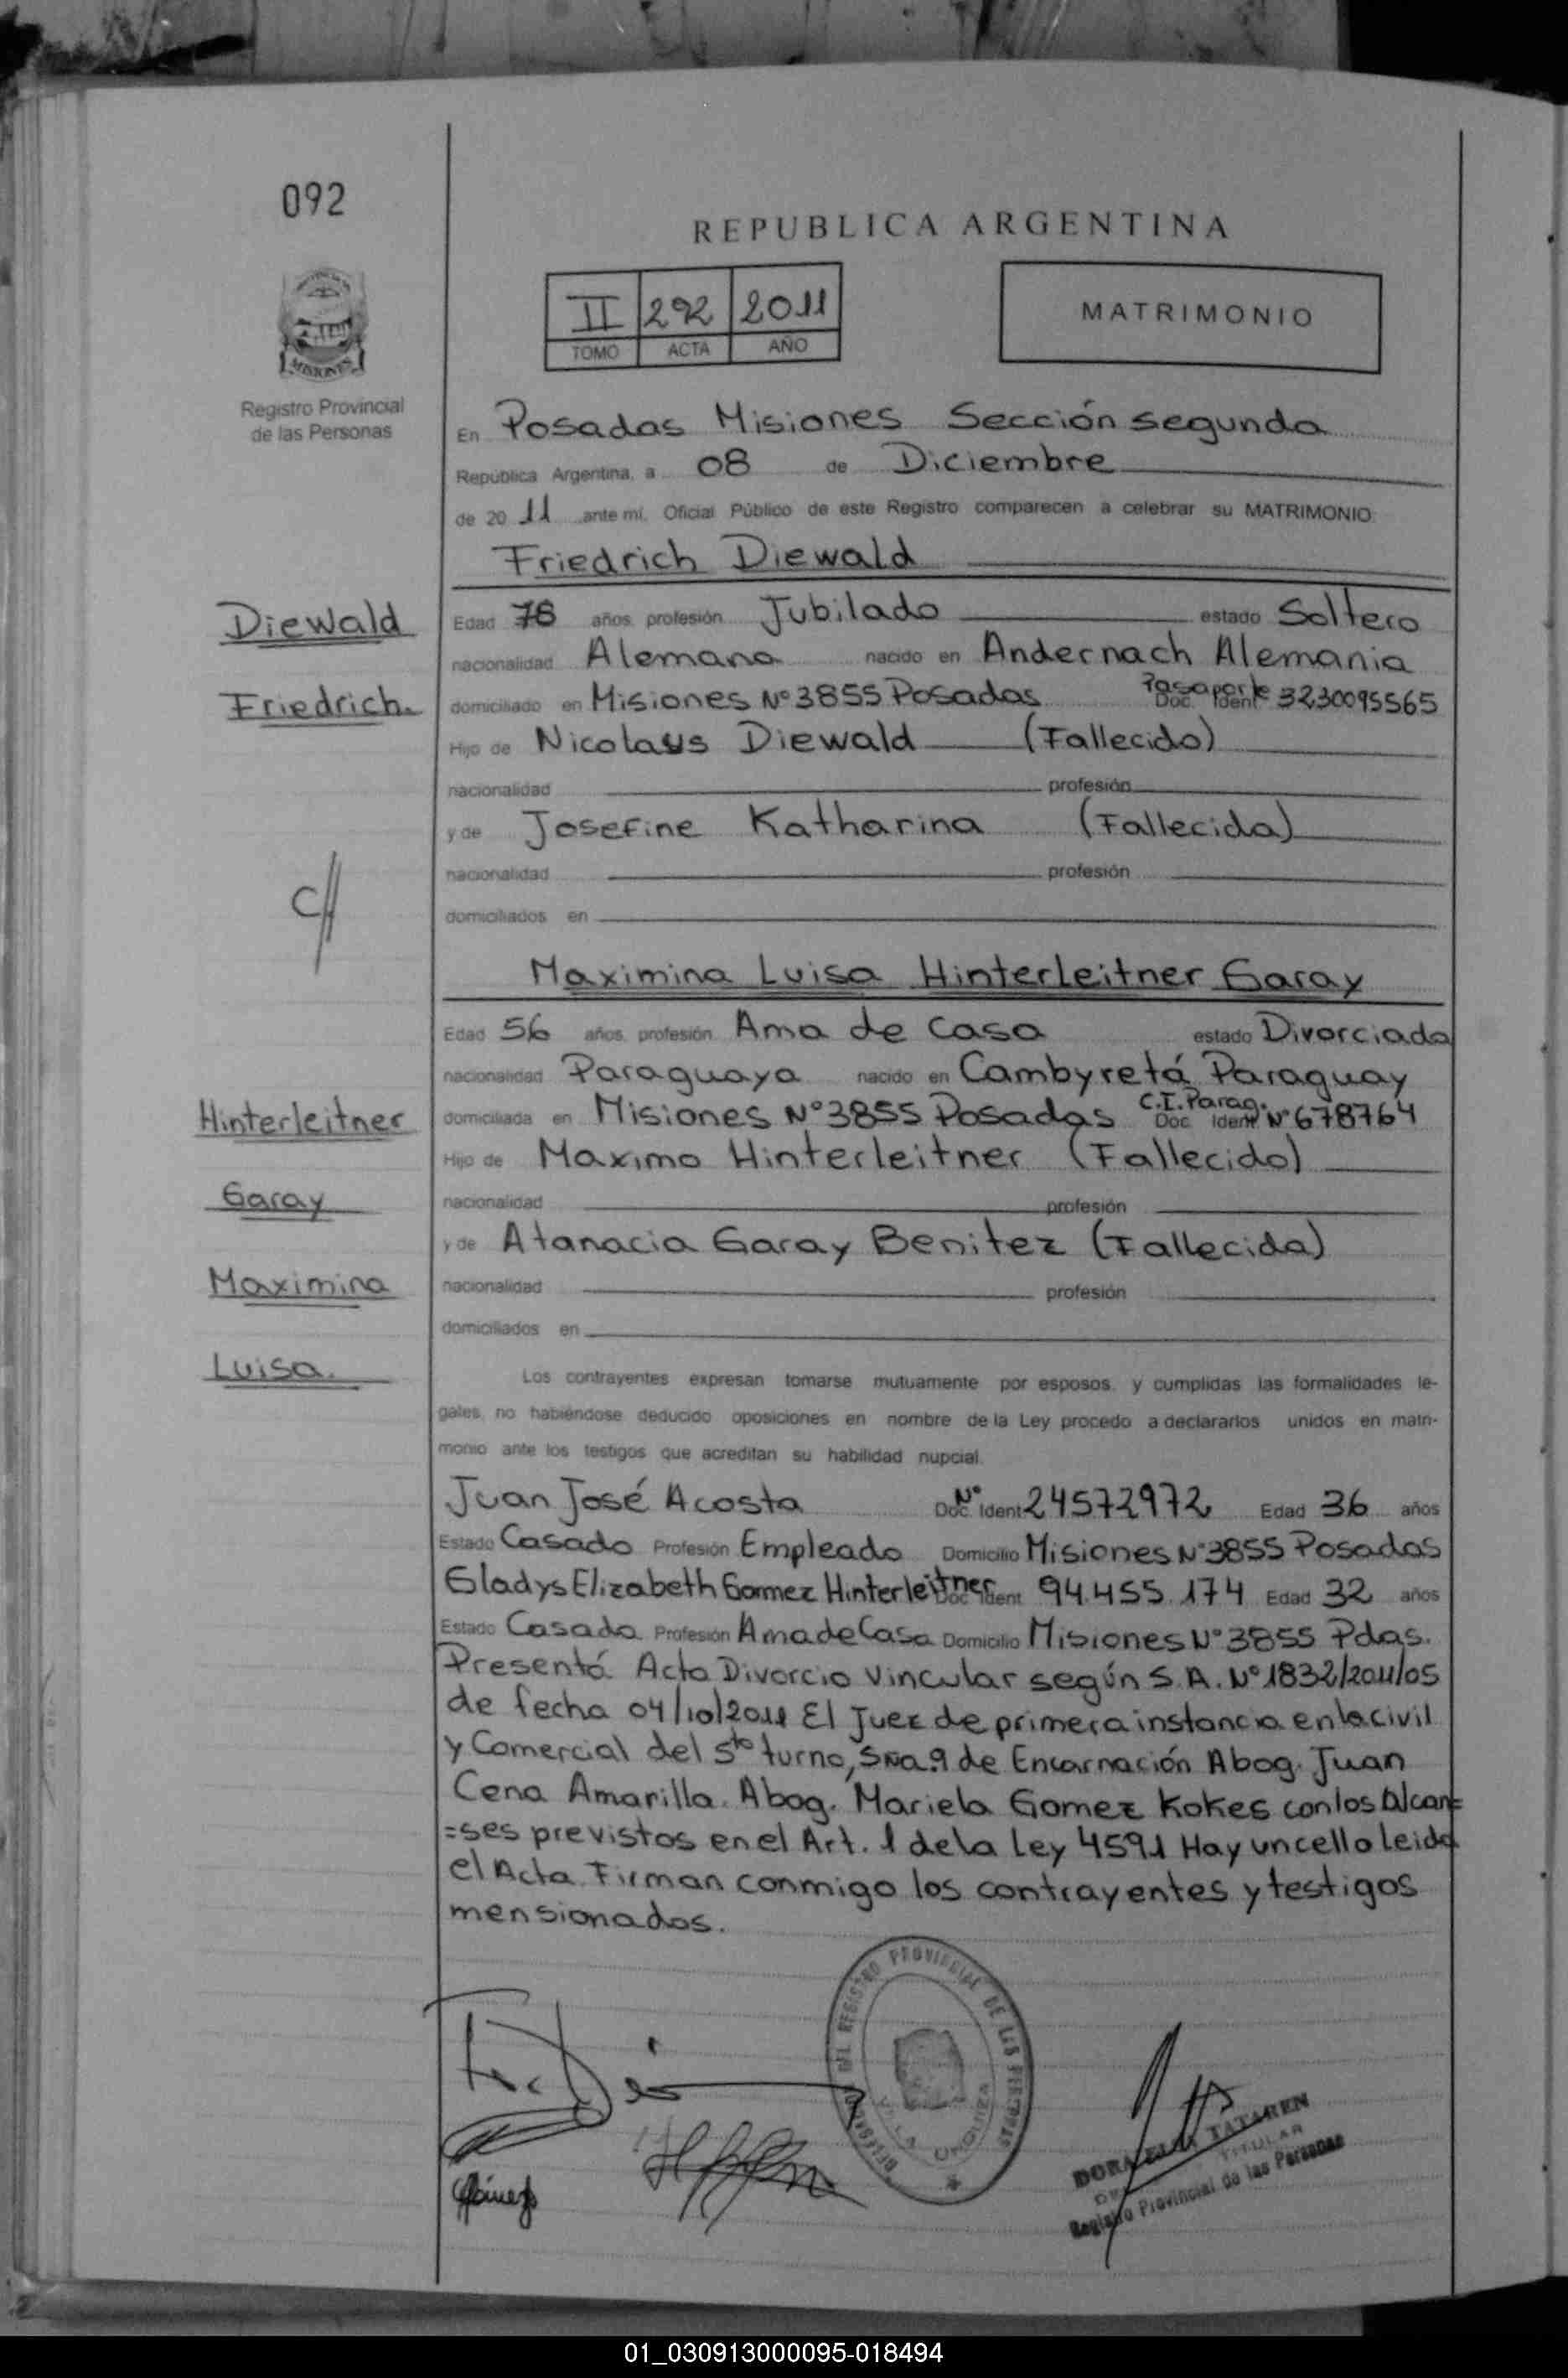 092
REPUBLICA ARGENTINA
II 292 2011
TOMO ACTA AÑO
MATRIMONIO
MISIONES
Registro Provincial
de las Personas
En Posadas Misiones Sección segunda
República Argentina, a 08 de Diciembre
de 20 11 ante mí, Oficial Público de este Registro comparecen a celebrar su MATRIMONIO:
Friedrich Diewald
Diewald
Edad 78 años, profesión Jubilado estado Soltero
nacionalidad Alemana nacido en Andernach Alemania
Friedrich.
domiciliado en Misiones Nº 3855 Posadas Pasaporte Doc. Ident 3230095565
Hijo de Nicolaus Diewald (Fallecido)
nacionalidad profesión
y de Josefine Katharina (Fallecida)
nacionalidad profesión
C//
domiciliados en
Maximina Luisa Hinterleitner Garay
Edad 56 años, profesión Ama de Casa estado Divorciada
nacionalidad Paraguaya nacido en Cambyretá Paraguay
Hinterleitner
domiciliada en Misiones Nº 3855 Posadas C.I. Parag. Doc. Ident Nº 678764
Hijo de Maximo Hinterleitner (Fallecido)
Garay
nacionalidad profesión
y de Atanacia Garay Benitez (Fallecida)
Maximina
nacionalidad profesión
domiciliados en
Luisa.
Los contrayentes expresan tomarse mutuamente por esposos, y cumplidas las formalidades le-
gales, no habiéndose deducido oposiciones en nombre de la Ley procedo a declararlos unidos en matri-
monio ante los testigos que acreditan su habilidad nupcial.
Juan José Acosta Nº Doc. Ident 24572972 Edad 36 años
Estado Casado Profesión Empleado Domicilio Misiones Nº 3855 Posadas
Gladys Elizabeth Gomez Hinterleitner Doc. Ident 94.455.174 Edad 32 años
Estado Casada Profesión Ama de Casa Domicilio Misiones Nº 3855 Pdas.
Presentá Acta Divorcio Vincular según S.A. Nº 1832/2011/05
de fecha 04/10/2011 El Juez de primera instancia en lo civil
y Comercial del 5to turno, Sria. 9 de Encarnación Abog. Juan
Cena Amarilla. Abog. Mariela Gomez Kokes con los Alcan=
=ses previstos en el Art. 1 de la Ley 4591 Hay un cello leida
el Acta Firman conmigo los contrayentes y testigos
mensionados.
REGISTRO PROVINCIAL DE LAS PERSONAS
VILLA URQUIZA
TATAREN
TITULAR
Registro Provincial de las Personas
01_030913000095-018494